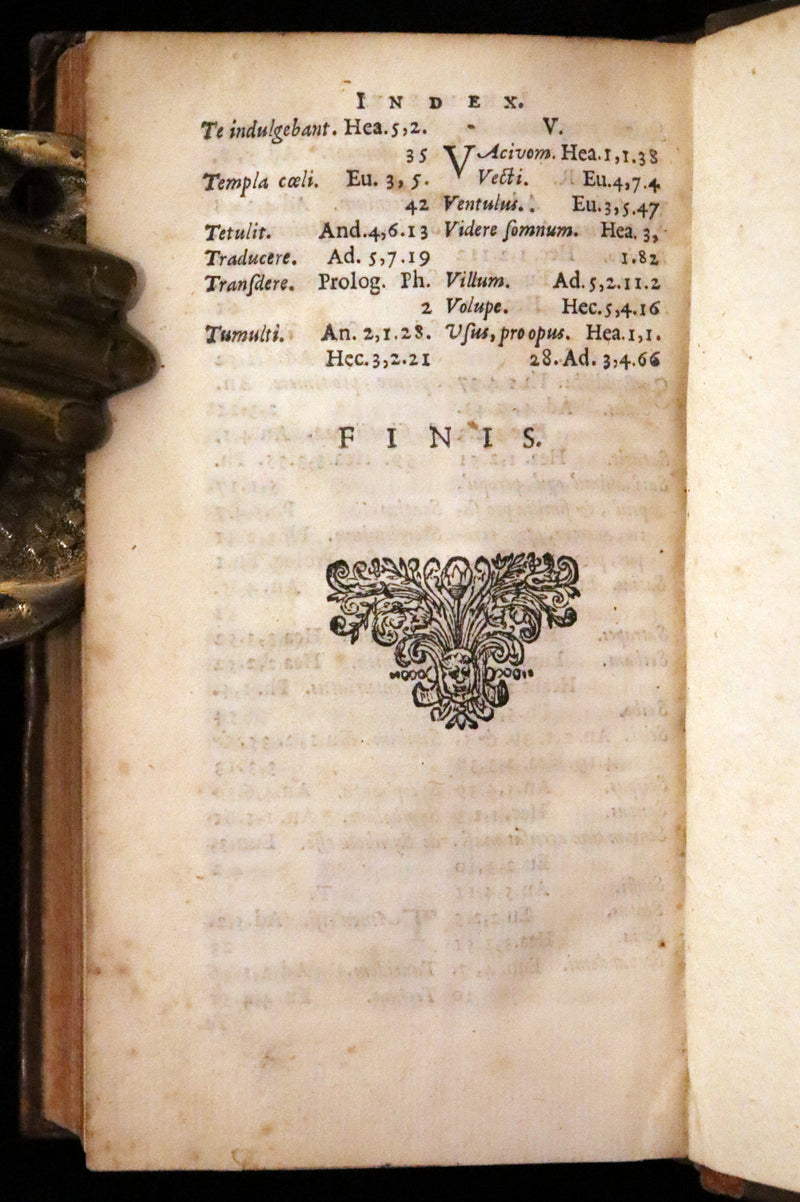 INDEX.
Te indulgebant. Hea.5,2.
35
Templa cœli. Eu. 3, 5.
42
Tetulit. And.4,6.13
Traducere. Ad. 5,7.19
Tranſdere. Prolog. Ph.
2
Tumulti. An. 2,1.28.
Hec.3,2.21
V.
VAcivom. Hea.1,1.38
Vecti. Eu.4,7.4
Ventulus. Eu.3,5.47
Videre ſomnum. Hea. 3,
1.82
Villum. Ad.5,2.11.2
Volupe. Hec.5,4.16
Vſus, pro opus. Hea.1,1.
28. Ad. 3,4.66
FINIS.